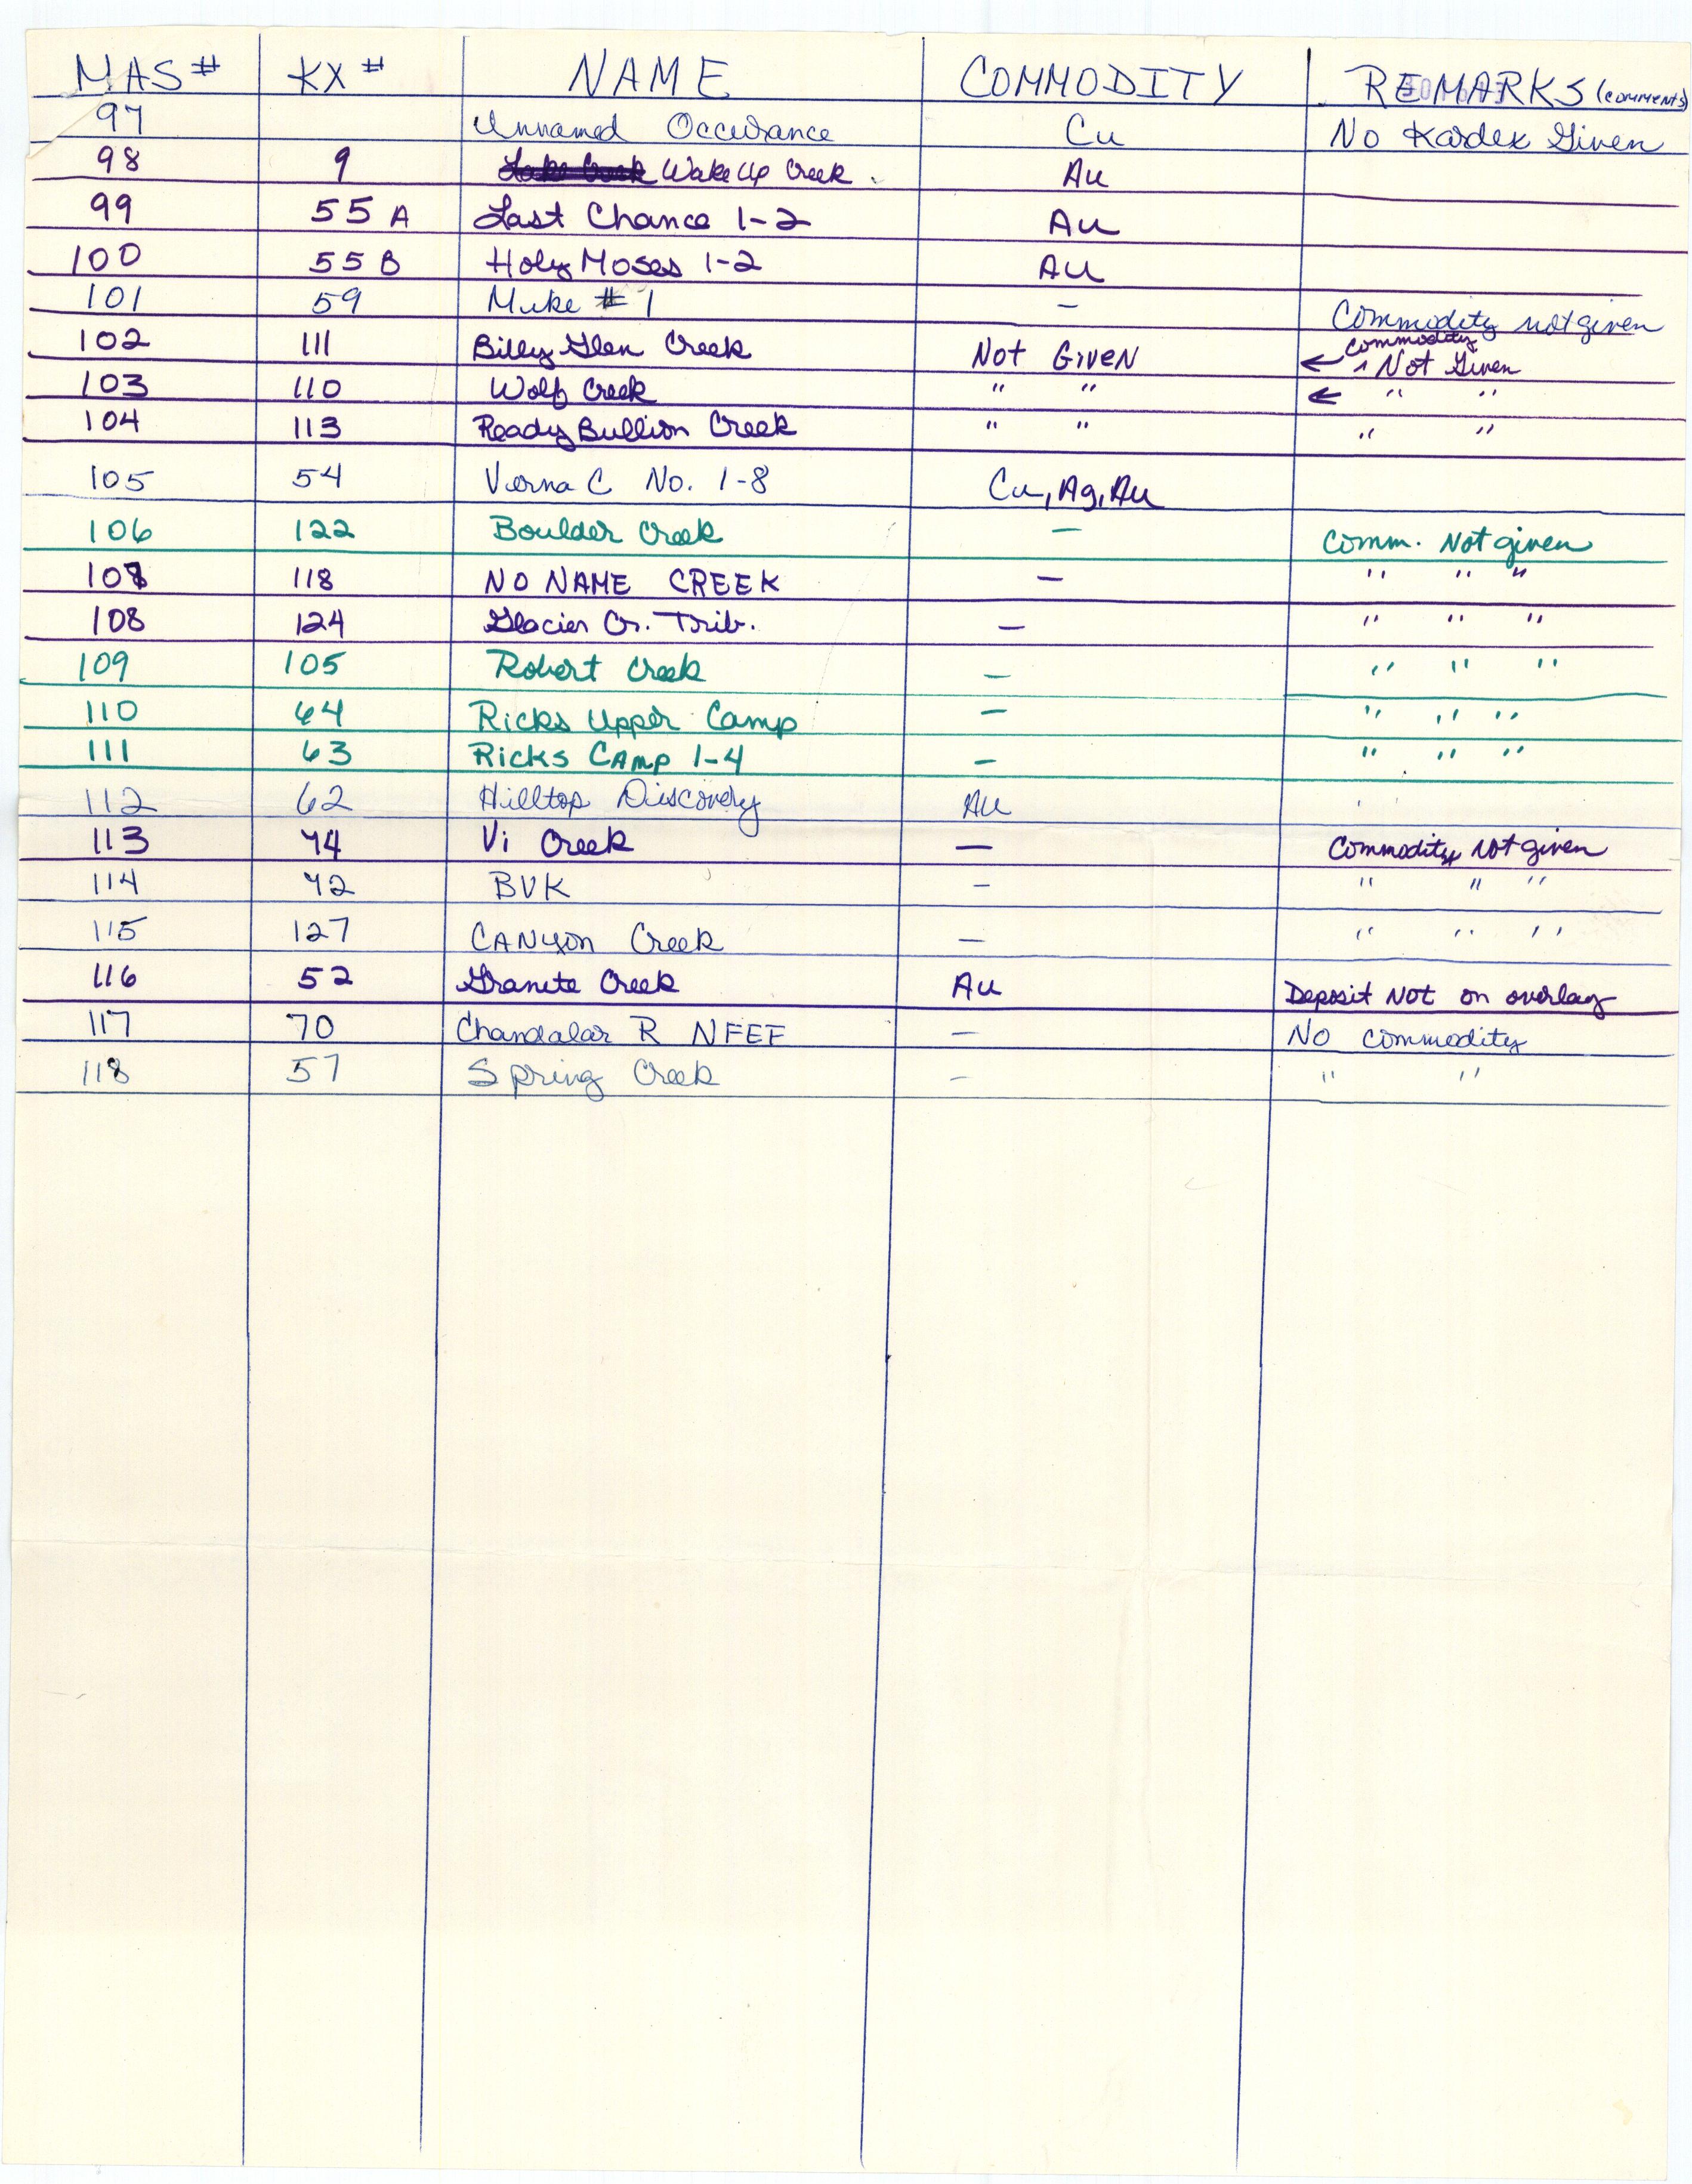 MAS # KX # NAME COMMODITY REMARKS (comments)
97 Unnamed Occurance Cu No Kardex Given
98 9 Wake Up Creek Au
99 55 A Last Chance 1-2 Au
100 55 B Holy Moses 1-2 Au
101 59 Muke # 1 – Commodity not given
102 111 Billy Glen Creek Not Given ← commodity Not Given
103 110 Wolf Creek " " ← " "
104 113 Ready Bullion Creek " " " "
105 54 Verna C No. 1-8 Cu, Ag, Au
106 122 Boulder Creek – Comm. Not given
107 118 NO NAME CREEK – " " "
108 124 Glacier Cr. Trib. – " " "
109 105 Robert Creek – " " "
110 64 Ricks Upper Camp – " " "
111 63 Ricks Camp 1-4 – " " "
112 62 Hilltop Discovery Au
113 74 Vi Creek – Commodity Not given
114 72 BVK – " " "
115 127 CANyon Creek – " " "
116 52 Granite Creek Au Deposit Not on overlay
117 70 Chandalar R NFEF – No commodity
118 57 Spring Creek – " "